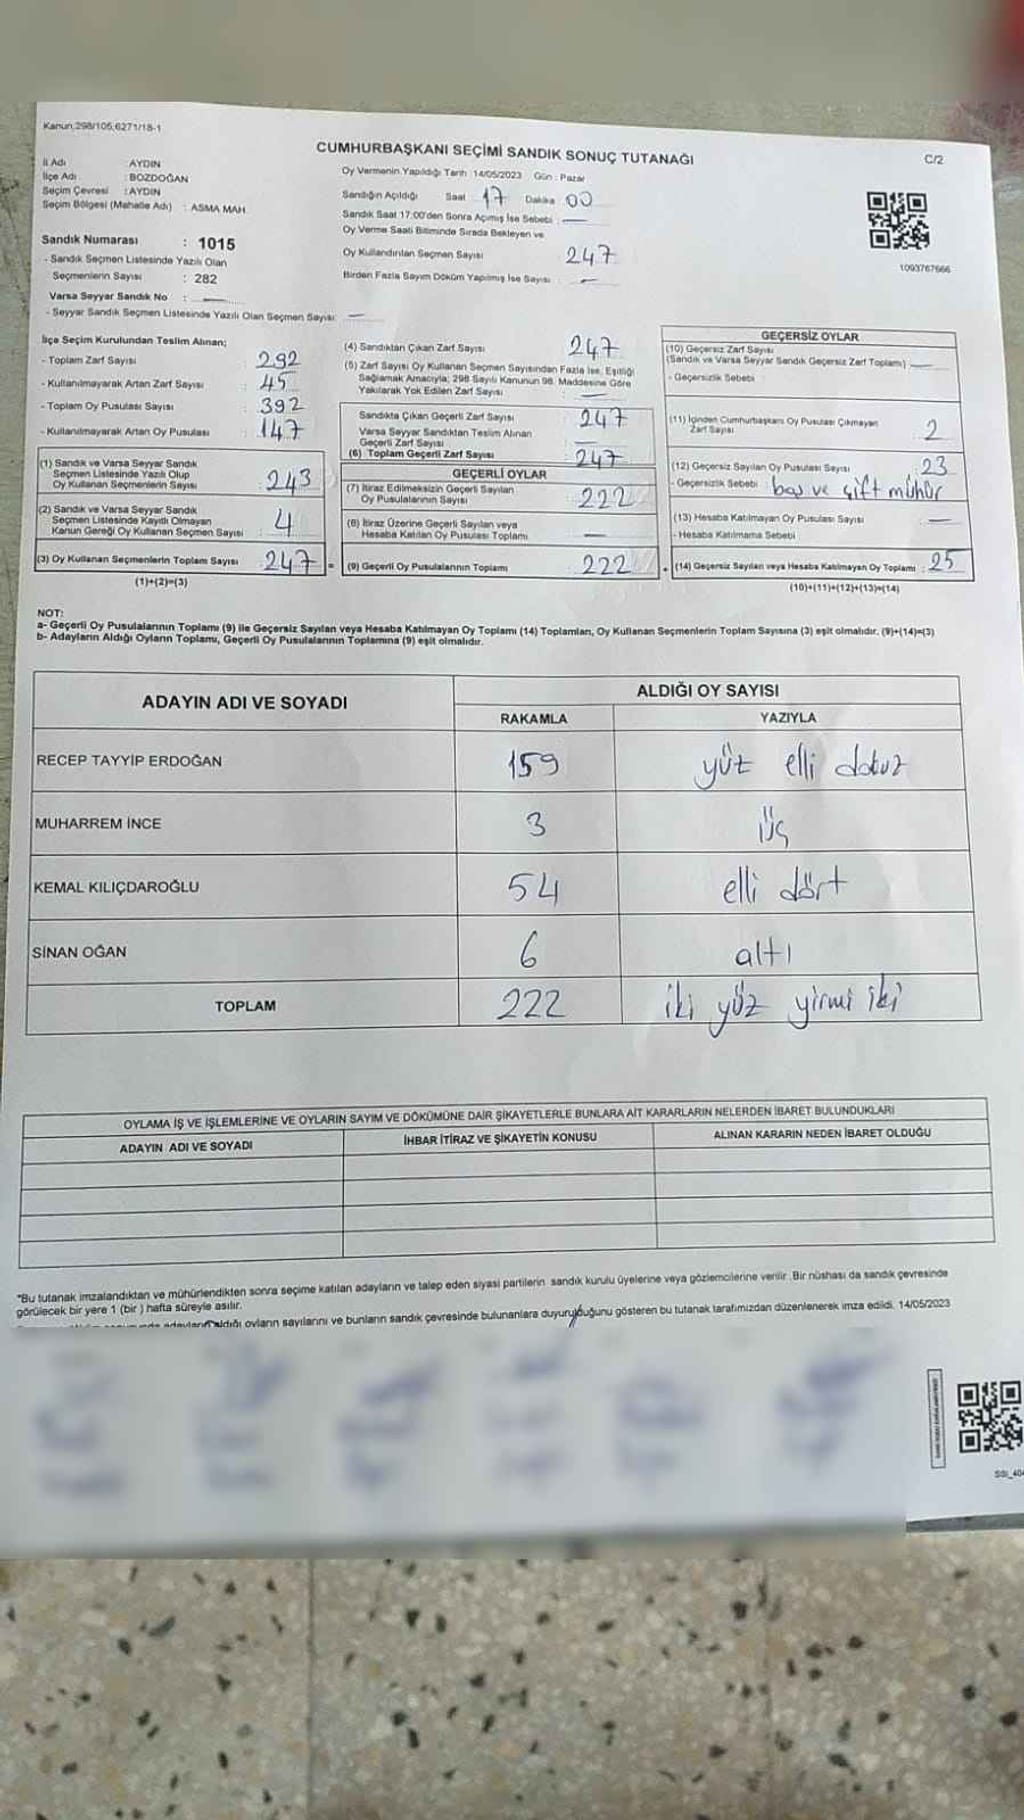 Kanun;298/105;6271/18-1
CUMHURBAŞKANI SEÇİMİ SANDIK SONUÇ TUTANAĞI
C/2
İl Adı : AYDIN
İlçe Adı : BOZDOĞAN
Seçim Çevresi : AYDIN
Seçim Bölgesi (Mahalle Adı) : ASMA MAH.
Oy Vermenin Yapıldığı Tarih 14/05/2023 Gün : Pazar
Sandığın Açıldığı Saat 17 Dakika 00
Sandık Saat 17:00'den Sonra Açımış İse Sebebi : —
Oy Verme Saati Bitiminde Sırada Bekleyen ve
Oy Kullandırılan Seçmen Sayısı 247
Birden Fazla Sayım Döküm Yapılmış İse Sayısı : —
1093767666
Sandık Numarası : 1015
- Sandık Seçmen Listesinde Yazılı Olan
Seçmenlerin Sayısı : 282
Varsa Seyyar Sandık No : —
- Seyyar Sandık Seçmen Listesinde Yazılı Olan Seçmen Sayısı: —
İlçe Seçim Kurulundan Teslim Alınan;
- Toplam Zarf Sayısı : 292
- Kullanılmayarak Artan Zarf Sayısı : 45
- Toplam Oy Pusulası Sayısı : 392
- Kullanılmayarak Artan Oy Pusulası : 147
(1) Sandık ve Varsa Seyyar Sandık
Seçmen Listesinde Yazılı Olup
Oy Kullanan Seçmenlerin Sayısı : 243
(2) Sandık ve Varsa Seyyar Sandık
Seçmen Listesinde Kayıtlı Olmayan
Kanun Gereği Oy Kullanan Seçmen Sayısı 4
(3) Oy Kullanan Seçmenlerin Toplam Sayısı : 247
(1)+(2)=(3)
(4) Sandıktan Çıkan Zarf Sayısı 247
(5) Zarf Sayısı Oy Kullanan Seçmen Sayısından Fazla İse, Eşitliği
Sağlamak Amacıyla; 298 Sayılı Kanunun 98. Maddesine Göre
Yakılarak Yok Edilen Zarf Sayısı : —
Sandıkta Çıkan Geçerli Zarf Sayısı 247
Varsa Seyyar Sandıktan Teslim Alınan
Geçerli Zarf Sayısı —
(6) Toplam Geçerli Zarf Sayısı 247
GEÇERLİ OYLAR
(7) İtiraz Edilmeksizin Geçerli Sayılan
Oy Pusulalarının Sayısı 222
(8) İtiraz Üzerine Geçerli Sayılan veya
Hesaba Katılan Oy Pusulası Toplamı —
= (9) Geçerli Oy Pusulalarının Toplamı 222
GEÇERSİZ OYLAR
(10) Geçersiz Zarf Sayısı
(Sandık ve Varsa Seyyar Sandık Geçersiz Zarf Toplamı) —
- Geçersizlik Sebebi :
(11) İçinden Cumhurbaşkanı Oy Pusulası Çıkmayan
Zarf Sayısı 2
(12) Geçersiz Sayılan Oy Pusulası Sayısı : 23
- Geçersizlik Sebebi : boş ve çift mühür
(13) Hesaba Katılmayan Oy Pusulası Sayısı : —
- Hesaba Katılmama Sebebi
+ (14) Geçersiz Sayılan veya Hesaba Katılmayan Oy Toplamı : 25
(10)+(11)+(12)+(13)=(14)
NOT:
a- Geçerli Oy Pusulalarının Toplamı (9) ile Geçersiz Sayılan veya Hesaba Katılmayan Oy Toplamı (14) Toplamları, Oy Kullanan Seçmenlerin Toplam Sayısına (3) eşit olmalıdır. (9)+(14)=(3)
b- Adayların Aldığı Oyların Toplamı, Geçerli Oy Pusulalarının Toplamına (9) eşit olmalıdır.
ADAYIN ADI VE SOYADI
ALDIĞI OY SAYISI
RAKAMLA YAZIYLA
RECEP TAYYİP ERDOĞAN 159 yüz elli dokuz
MUHARREM İNCE 3 üç
KEMAL KILIÇDAROĞLU 54 elli dört
SİNAN OĞAN 6 altı
TOPLAM 222 iki yüz yirmi iki
OYLAMA İŞ VE İŞLEMLERİNE VE OYLARIN SAYIM VE DÖKÜMÜNE DAİR ŞİKAYETLERLE BUNLARA AİT KARARLARIN NELERDEN İBARET BULUNDUKLARI
ADAYIN ADI VE SOYADI İHBAR İTİRAZ VE ŞİKAYETİN KONUSU ALINAN KARARIN NEDEN İBARET OLDUĞU
*Bu tutanak imzalandıktan ve mühürlendikten sonra seçime katılan adayların ve talep eden siyasi partilerin sandık kurulu üyelerine veya gözlemcilerine verilir. Bir nüshası da sandık çevresinde
görülecek bir yere 1 (bir ) hafta süreyle asılır.
adayların aldığı oyların sayılarını ve bunların sandık çevresinde bulunanlara duyurulduğunu gösteren bu tutanak tarafımızdan düzenlenerek imza edildi. 14/05/2023